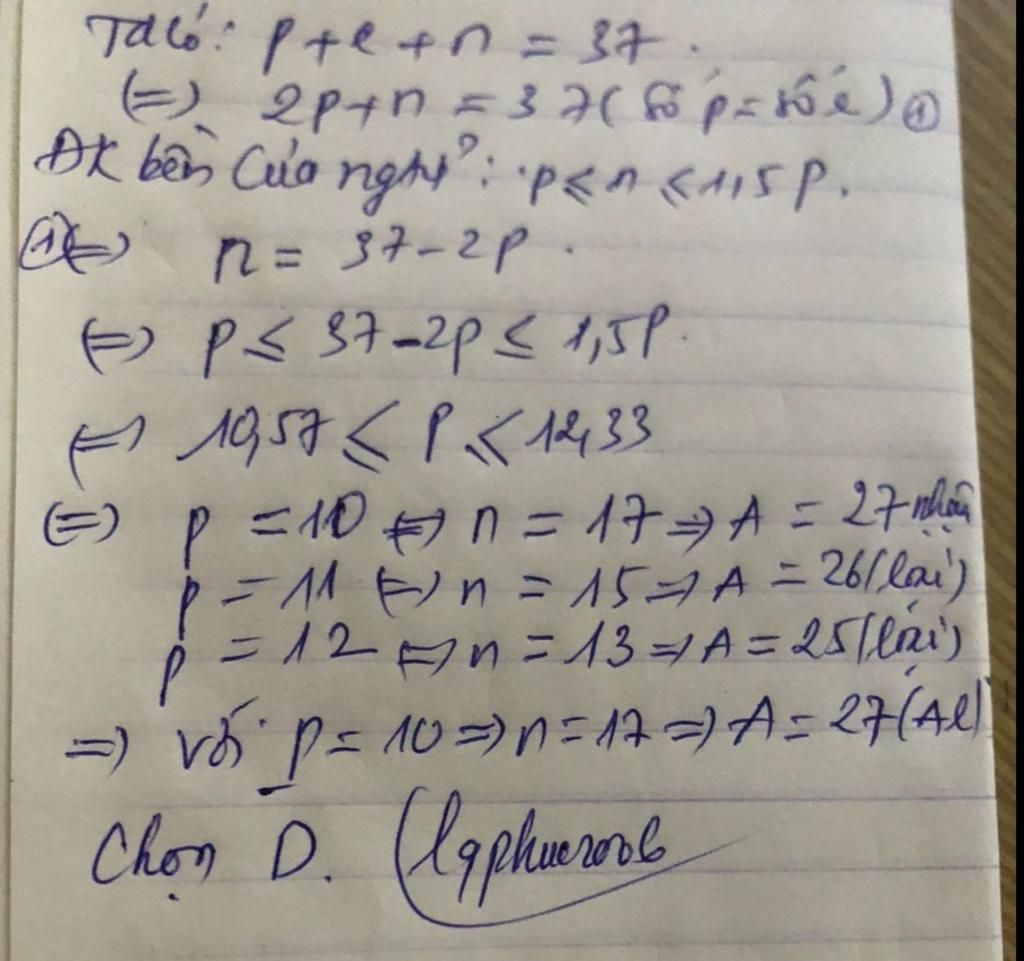 Ta có: p + e + n = 37.
(=) 2p + n = 37 (số p = số e) ①
ĐK bền của ngtử: p ≤ n ≤ 1,5p.
① (=) n = 37 - 2p.
(=) p ≤ 37 - 2p ≤ 1,5p.
(=) 10,57 ≤ p ≤ 12,33
(=) p = 10 (=) n = 17 => A = 27 nhận
p = 11 (=) n = 15 => A = 26 (loại)
p = 12 (=) n = 13 => A = 25 (loại)
=> với p = 10 => n = 17 => A = 27 (Al)
Chọn D.